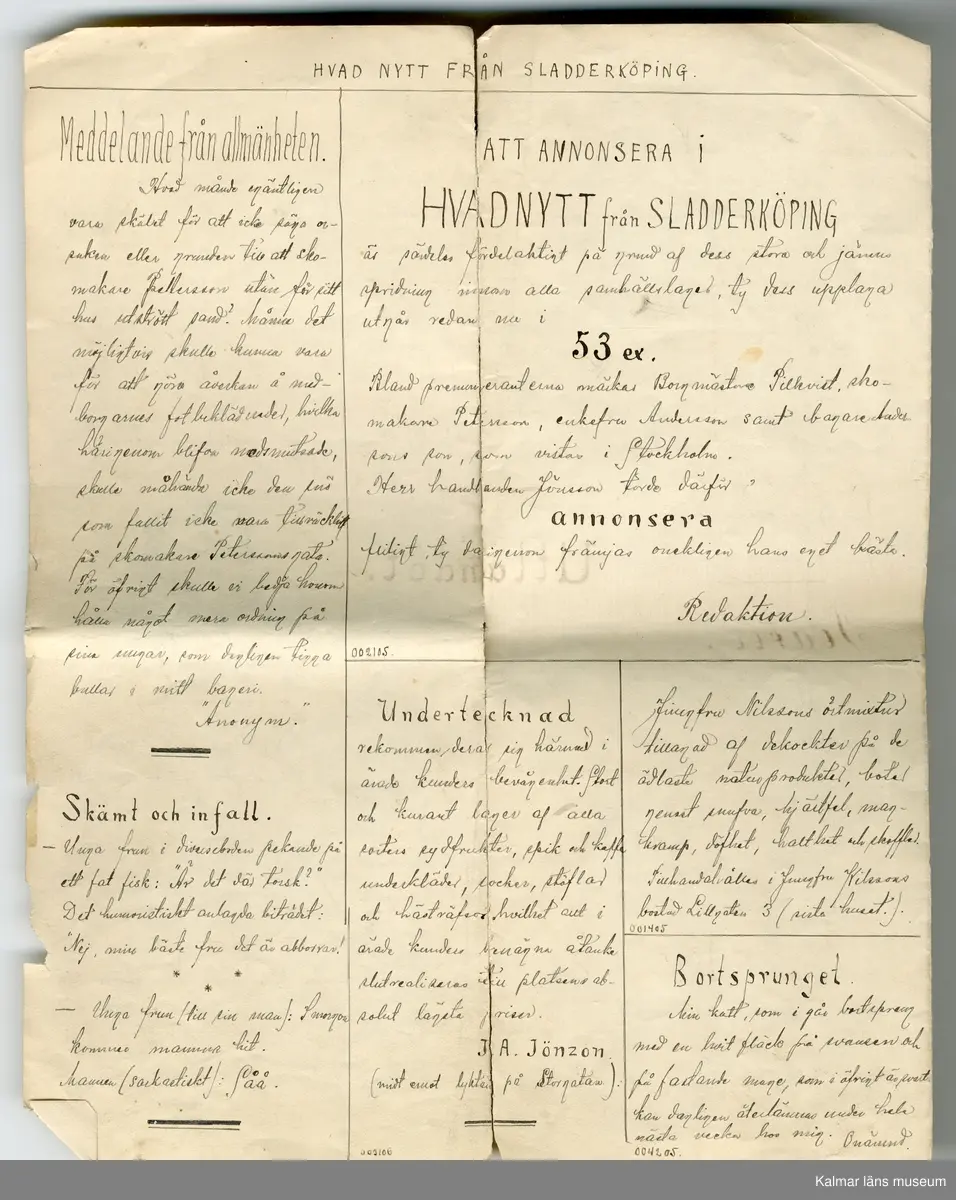 HVAD NYTT FRÅN SLADDERKÖPING.
Meddelande från allmänheten.
Hvad månde egäntligen
vara skälet för att icke säga or-
saken eller grunden till att sko-
makare Pettersson utan för sitt
hus utstrött sand? Månne det
möjligtvis skulle kunna vara
för att göra åverkan å med-
borgarnes fotbeklädnader, hvilka
härigenom blifva nedsmutsade,
skulle måhända icke den snö
som fallit icke vara tillräcklig
på skomakare Peterssons gata.
För öfrigt skulle vi bedja honom
hålla något mera ordning på
sina ungar, som dagligen tigga
bullar i mitt bageri.
"Anonym."
Skämt och infall.
— Unga frun i diverseboden pekande på
ett fat fisk: "Är det där torsk?"
Det humoristiskt anlagda biträdet:
"Nej, min bäste fru det är abborrar!
* * *
— Unga frun (till sin man): I morgon
kommer mamma hit.
Mannen (sarkastiskt): Såå.
ATT ANNONSERA i
HVADNYTT från SLADDERKÖPING
är särdeles fördelaktigt på grund af dess stora och jämna
spridning innom alla samhällslager, ty dess upplaga
utgår redan nu i
53 ex.
Bland prenumeranterna märkas Borgmästare Pillkvist, sko-
makare Petersson, enkefru Andersson samt bagare Anders-
sons son, som vistas i Stockholm.
Herr handlanden Jönsson torde därför
annonsera
flitigt, ty därigenom främjas onekligen hans eget bästa.
Redaktion.
002105.
Undertecknad
rekommenderar sig härmed i
ärade kunders bevågenhet. Stort
och kurant lager af alla
sorters sydfrukter, spik och kaffe
underkläder, socker, stöflar
och hästräfsor hvilket allt i
ärade kunders benägna åtanke
slutrealiseras till platsens ab-
solut lägsta priser.
J. A. Jönzon.
(midt emot lyktan på Storgatan):
003106
Jungfru Nilssons örtmixtur
tillagad af dekockter på de
ädlaste naturprodukter, botar
genast snufva, hjärtfel, mag-
kramp, döfhet, halthet och skofflor.
Tillhandahålles i Jungfru Nilssons
bostad Lillgatan 3 (sista huset.).
001405
Bortsprunget.
Min katt, som i går bortsprang
med en hvit fläck på svansen och
på fastande mage, som i öfrigt är svart
kan dagligen återlämnas under hela
nästa vecka hos mig. Onämnd.
004205.
Kalmar läns museum